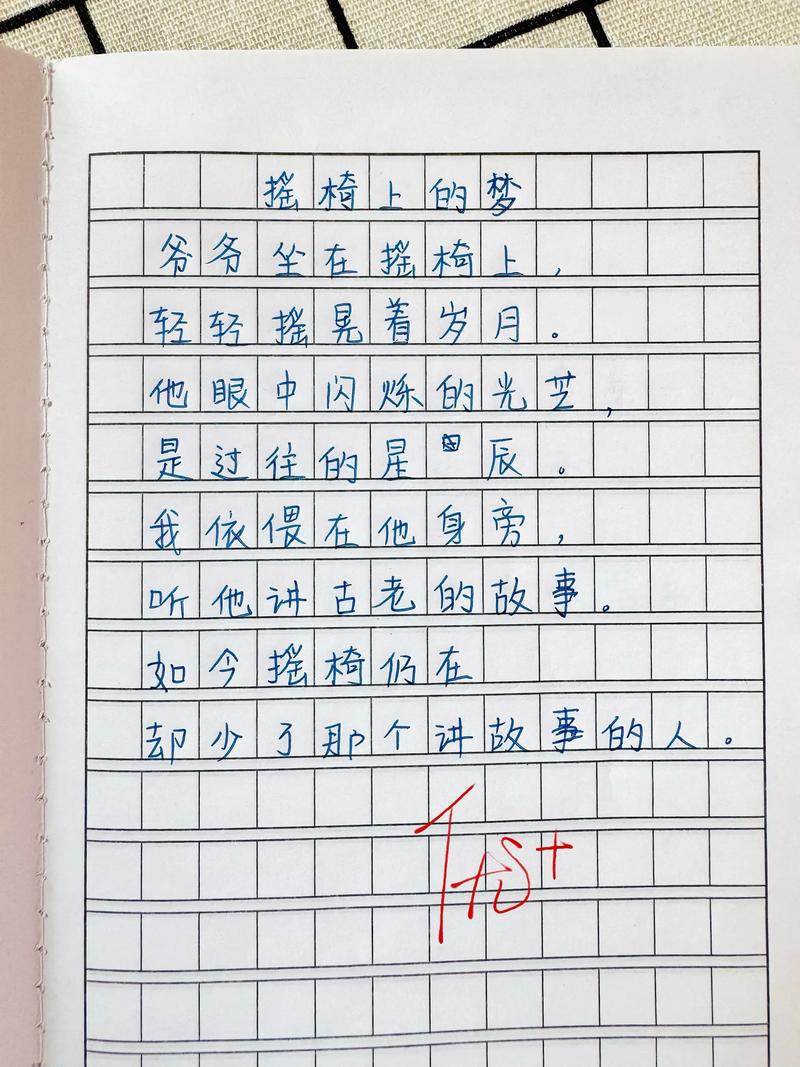 摇椅上的梦
爷爷坐在摇椅上，
轻轻摇晃着岁月。
他眼中闪烁的光芒，
是过往的星辰。
我依偎在他身旁，
听他讲古老的故事。
如今摇椅仍在
却少了那个讲故事的人。